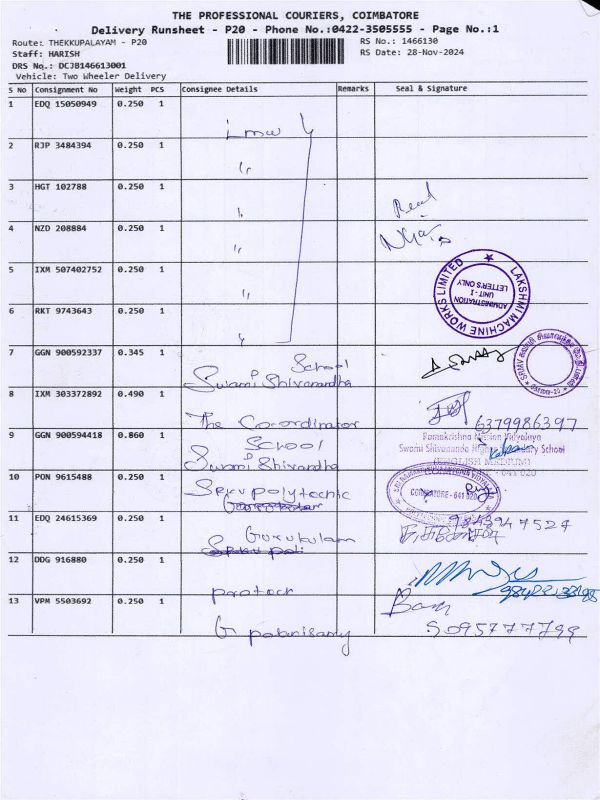 THE PROFESSIONAL COURIERS, COIMBATORE
Delivery Runsheet - P20 - Phone No.:0422-3505555 - Page No.:1
Route: THEKKUPALAYAM - P20 RS No.: 1466130
Staff: HARISH RS Date: 28-Nov-2024
DRS No.: DCJ8146613001
Vehicle: Two Wheeler Delivery
S No Consignment No Weight PCS Consignee Details Remarks Seal & Signature
1 EDQ 15050949 0.250 1 Lmw
2 RJP 3484394 0.250 1 "
3 HGT 102788 0.250 1
4 NZD 208884 0.250 1 "
5 IXM 507402752 0.250 1 "
LAKSHMI MACHINE WORKS LIMITED
ADMINISTRATION
UNIT - I
LETTER'S ONLY
6 RKT 9743643 0.250 1
7 GGN 900592337 0.345 1 School
Swami Shivanandha
8 IXM 303372892 0.490 1 6379986397
The Co-ordinator
9 GGN 900594418 0.860 1 School
Ramakrishna Mission Vidyalaya
Swami Shivananda Higher Secondary School
(ENGLISH MEDIUM)
- 641 020
Swami Shivandha
10 PON 9615488 0.250 1 COIMBATORE - 641 020
Srkv polytechic
11 EDQ 24615369 0.250 1 9843947524
Gurukulam
12 DDG 916880 0.250 1
13 VPM 5503692 0.250 1
G palanisamy 9095777799